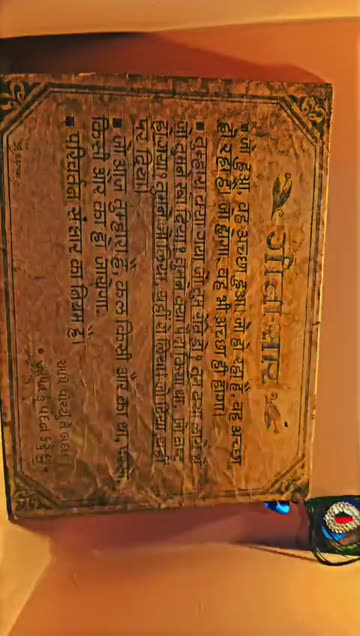 गीता-सार
■ जो हुआ, वह अच्छा हुआ, जो हो रहा है, वह अच्छा
हो रहा है, जो होगा, वह भी अच्छा ही होगा।
■ तुम्हारा क्या गया, जो तुम रोते हो? तुम क्या लाए थे,
जो तुमने खो दिया? तुमने क्या पैदा किया था, जो नष्ट
हो गया? तुमने जो लिया, यहीं से लिया, जो दिया, यहीं
पर दिया।
■ जो आज तुम्हारा है, कल किसी और का था, परसों
किसी और का हो जाएगा,
■ परिवर्तन संसार का नियम है।